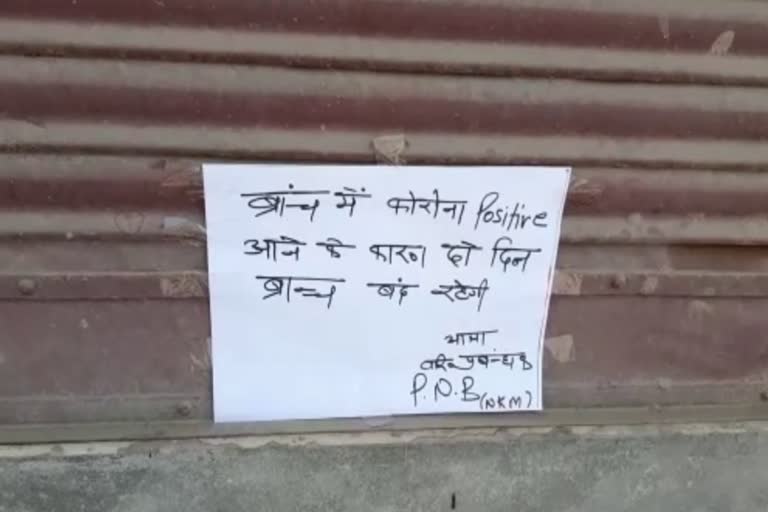 ब्रांन्च में कोरोना Positive
आने के कारण दो दिन
ब्रान्च बंद रहेगी
आज्ञा
वरि० प्रबन्धक
P.N.B (NKM)